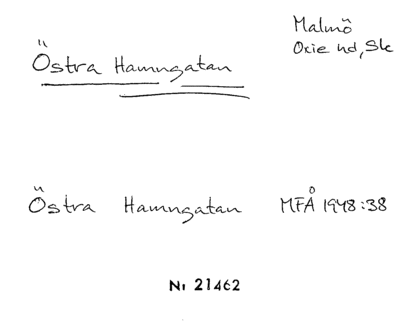 Östra Hamngatan
Malmö
Oxie hd, Sk
Östra Hamngatan MFÅ 1948:38
Nr 21462